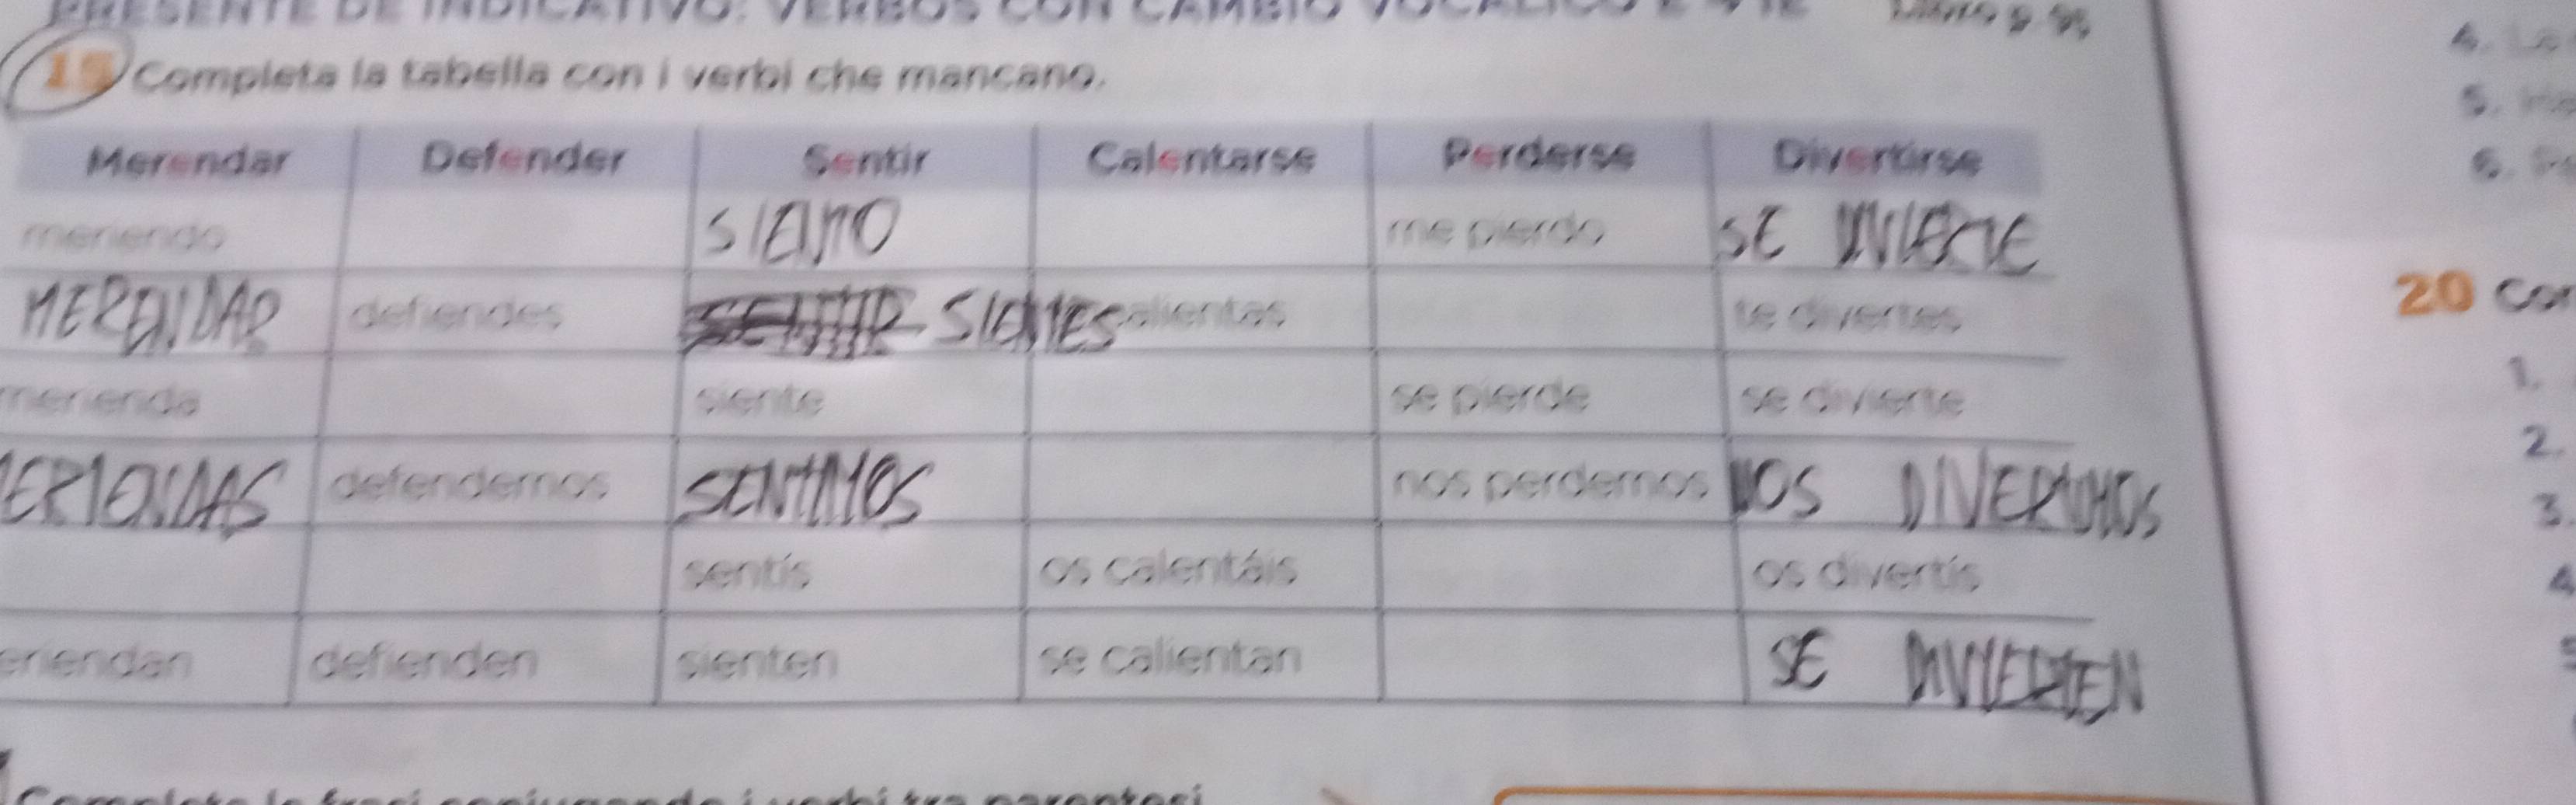 PRESENTE DE INDICATIVO: VERBOS CON CAMBIO VOCÁLICO E → IE
19 Completa la tabella con i verbi che mancano.
Merendar Defender Sentir Calentarse Perderse Divertirse
meriendo SIENTO me pierdo SE DIVIERTE
MERENDAR defiendes SIENTES calientas te diviertes
merienda siente se pierde se divierte
MERIENDAS defendemos SENTIMOS nos perdemos NOS DIVERTIMOS
sentís os calentáis os divertís
meriendan defienden sienten se calientan SE DIVIERTEN
Completa le frasi coniugando i verbi tra parentesi
4.
5.
6.
20
1.
2.
3.
4